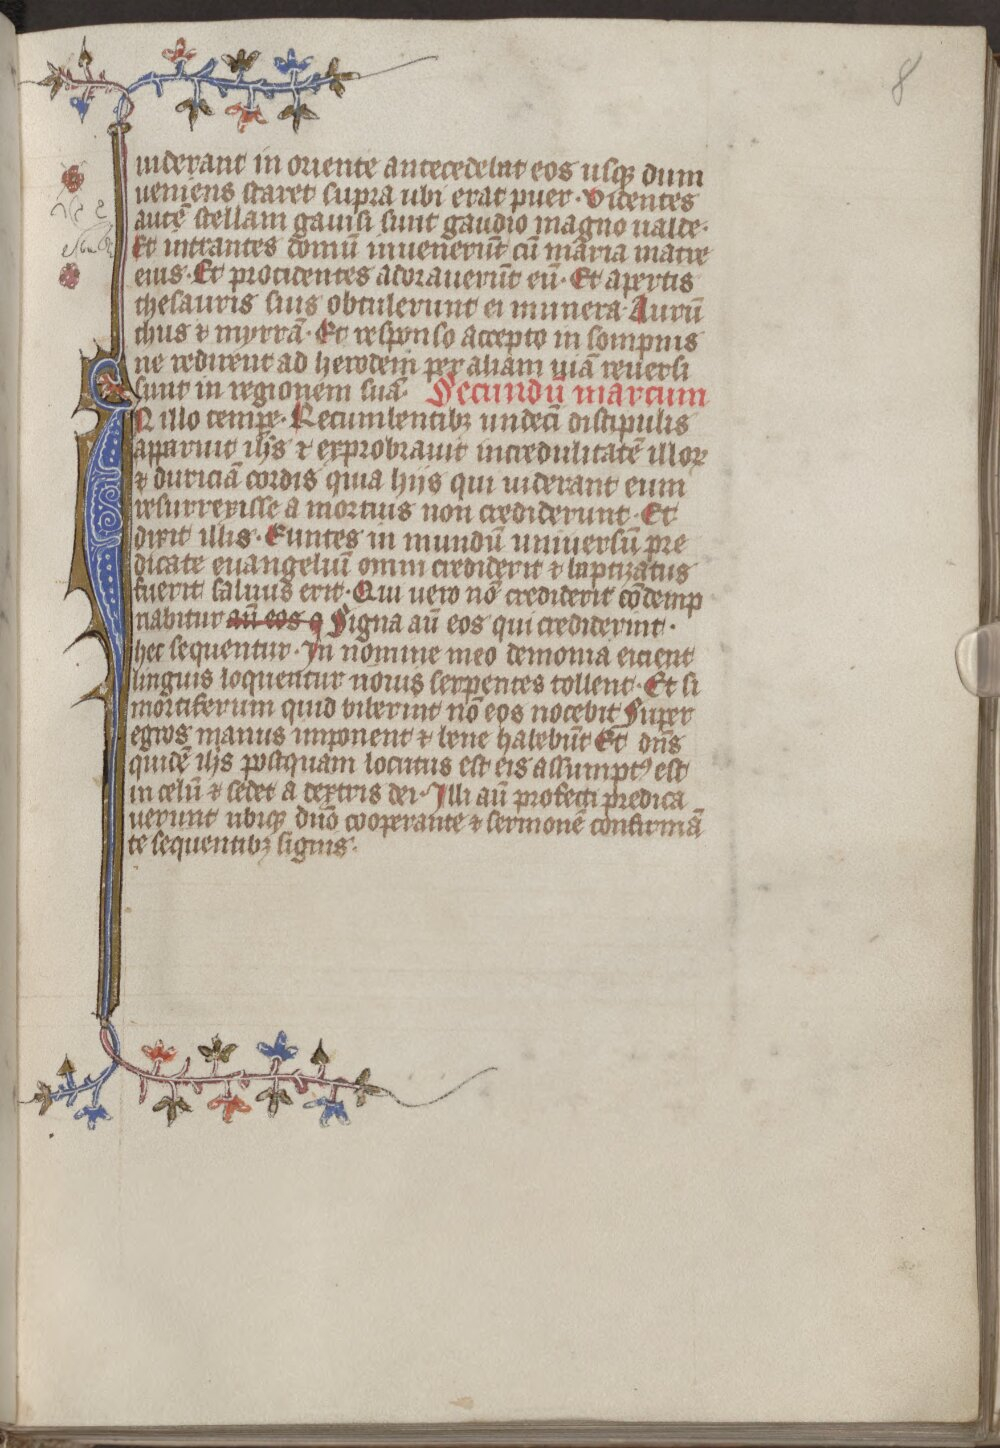 8
uiderant in oriente antecedebat eos usq3 dum
ueniens staret supra ubi erat puer· Videntes
autē stellam gauisi sunt gaudio magno ualde·
Et intrantes domū inuenerūt cū maria matre
eius· Et procidentes adorauerūt eū· Et apertis
thesauris suis obtulerunt ei munera· Aurū
thus ⁊ myrrā· Et responso accepto in sompnis
ne redirent ad herodem per aliam uiā reuersi
sunt in regionem suā· Secundū marcum
IN illo tempe· Recumbentibꝫ undeci discipulis
apparuit ihs̄ ⁊ exprobrauit incredulitatē illoꝝ
⁊ duriciā cordis quia hijs qui uiderant eum
resurrexisse a mortuis non crediderunt· Et
dixit illis· Euntes in mundū uniuersū pre
dicate euangeliū omni crediderit ⁊ baptizatus
fuerit saluus erit· Qui uero nō crediderit cōdemp
nabitur aū eos q Signa aū eos qui crediderint·
hec sequentur· In nomine meo demonia eicient
linguis loquentur nouis serpentes tollent· Et si
mortiferum quid biberint nō eos nocebit Super
egros manus imponent ⁊ bene habebūt Et dn̄s
quidē ihs postquam locutus est eis assumptꝰ est
in celū ⁊ sedet a dextris dei· Illi aū profecti predica
uerunt ubiqꝫ dn̄o cooperante ⁊ sermonē confirmā
te sequentibꝫ signis·